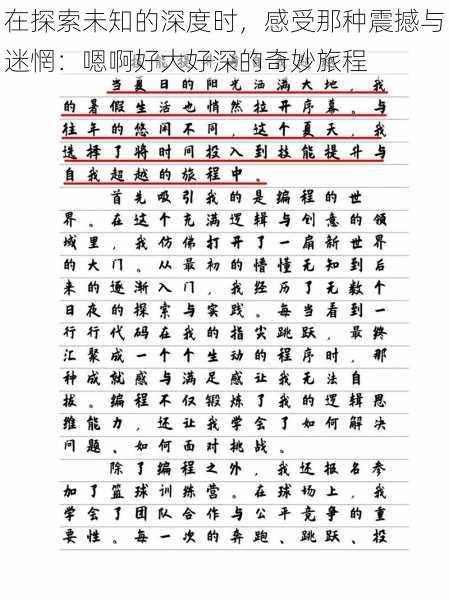 在探索未知的深度时，感受那种震撼与
迷惘：嗯啊好大好深的奇妙旅程
当夏日的阳光洒满大地，我
的暑假生活也悄然拉开序幕。与
往年的悠闲不同，这个夏天，我
选择了将时间投入到技能提升与
自我超越的旅程中。
首先吸引我的是编程的世
界。在这个充满逻辑与创意的领
域里，我仿佛打开了一扇新世界
的大门。从最初的懵懂无知到后
来的逐渐入门，我经历了无数个
日夜的探索与实践。每当看到一
行行代码在我的指尖跳跃，最终
汇聚成一个个生动的程序时，那
种成就感与满足感让我无法自
拔。编程不仅锻炼了我的逻辑思
维能力，还让我学会了如何解决
问题、如何面对挑战。
除了编程之外，我还报名参
加了篮球训练营。在球场上，我
学会了团队合作与公平竞争的重
要性。每一次的奔跑、跳跃、投